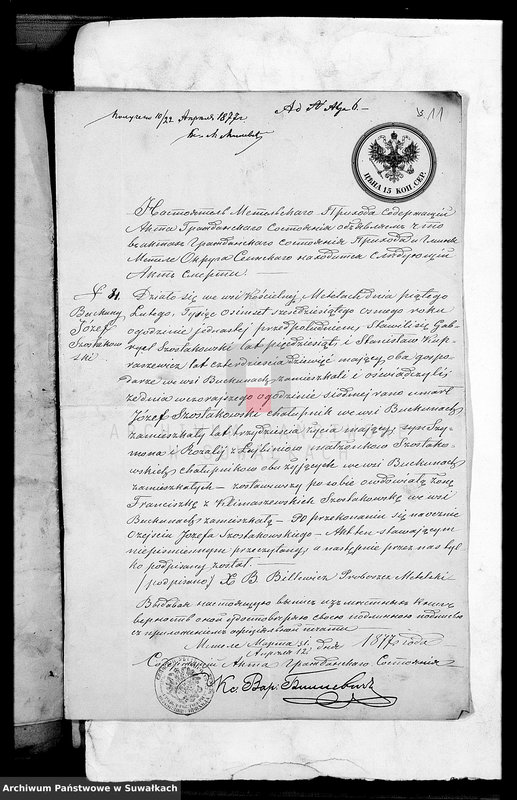 Получено 10/22 Апреля 1877 г
Ad N Alga 6. —
11
ЦѢНА 15 КОП. СЕР.
Настоятель Метельскаго Прихода Содержащій
Акта Гражданскаго Состоянія объявляетъ что
въ актахъ Гражданскаго Состоянія Прихода и Гмины
Метеле Округа Сейнскаго находится слѣдующій
Актъ смерти. —
N 31.
Buckuny
Józef
Szostakow
ski
Działo się we wsi Kościelnej Metelach dnia piątego
Lutego, Tysiąc ośmset sześćdziesiątego ósmego roku
o godzinie jednastej przed południem, Stawili się Gab-
ryel Szostakowski lat pięćdziesiąt i Stanisław Kup-
raszewicz lat czterdzieścia dziewięć mający, oba gospo-
darze we wsi Buckunach zamieszkali i oświadczyli
że dnia wczorajszego o godzinie siódmej rano umarł
Józef Szostakowski chałupnik we wsi Buckunach
zamieszkały lat trzydzieścia życia mający, syn Szy-
mona i Rozalii z Lubiniow małżonków Szostako-
wskich chałupników obu żyjących we wsi Buckunach
zamieszkałych — zostawiwszy po sobie owdowiałą żonę
Franciszkę z Klimaszewskich Szostakowską we wsi
Buckunach zamieszkałą — Po przekonaniu się naocznie
o zejściu Józefa Szostakowskiego — Akt ten stawającym
niepiśmiennym przeczytany, a następnie przez nas tyl-
ko podpisany został. —
(podpisano) X B Bilewicz Proboszcz Metelski
Выдавая настоящую выпись изъ метныхъ книгъ
вѣрность оной удостовѣряю своею подписью
съ приложеніемъ оффиціальной печати
Метеле Марта 31 / Апрѣля 12 дня 1877 года
Содержащій Акта Гражданскаго Состоянія
Кс. Вар.
Archiwum Państwowe w Suwałkach